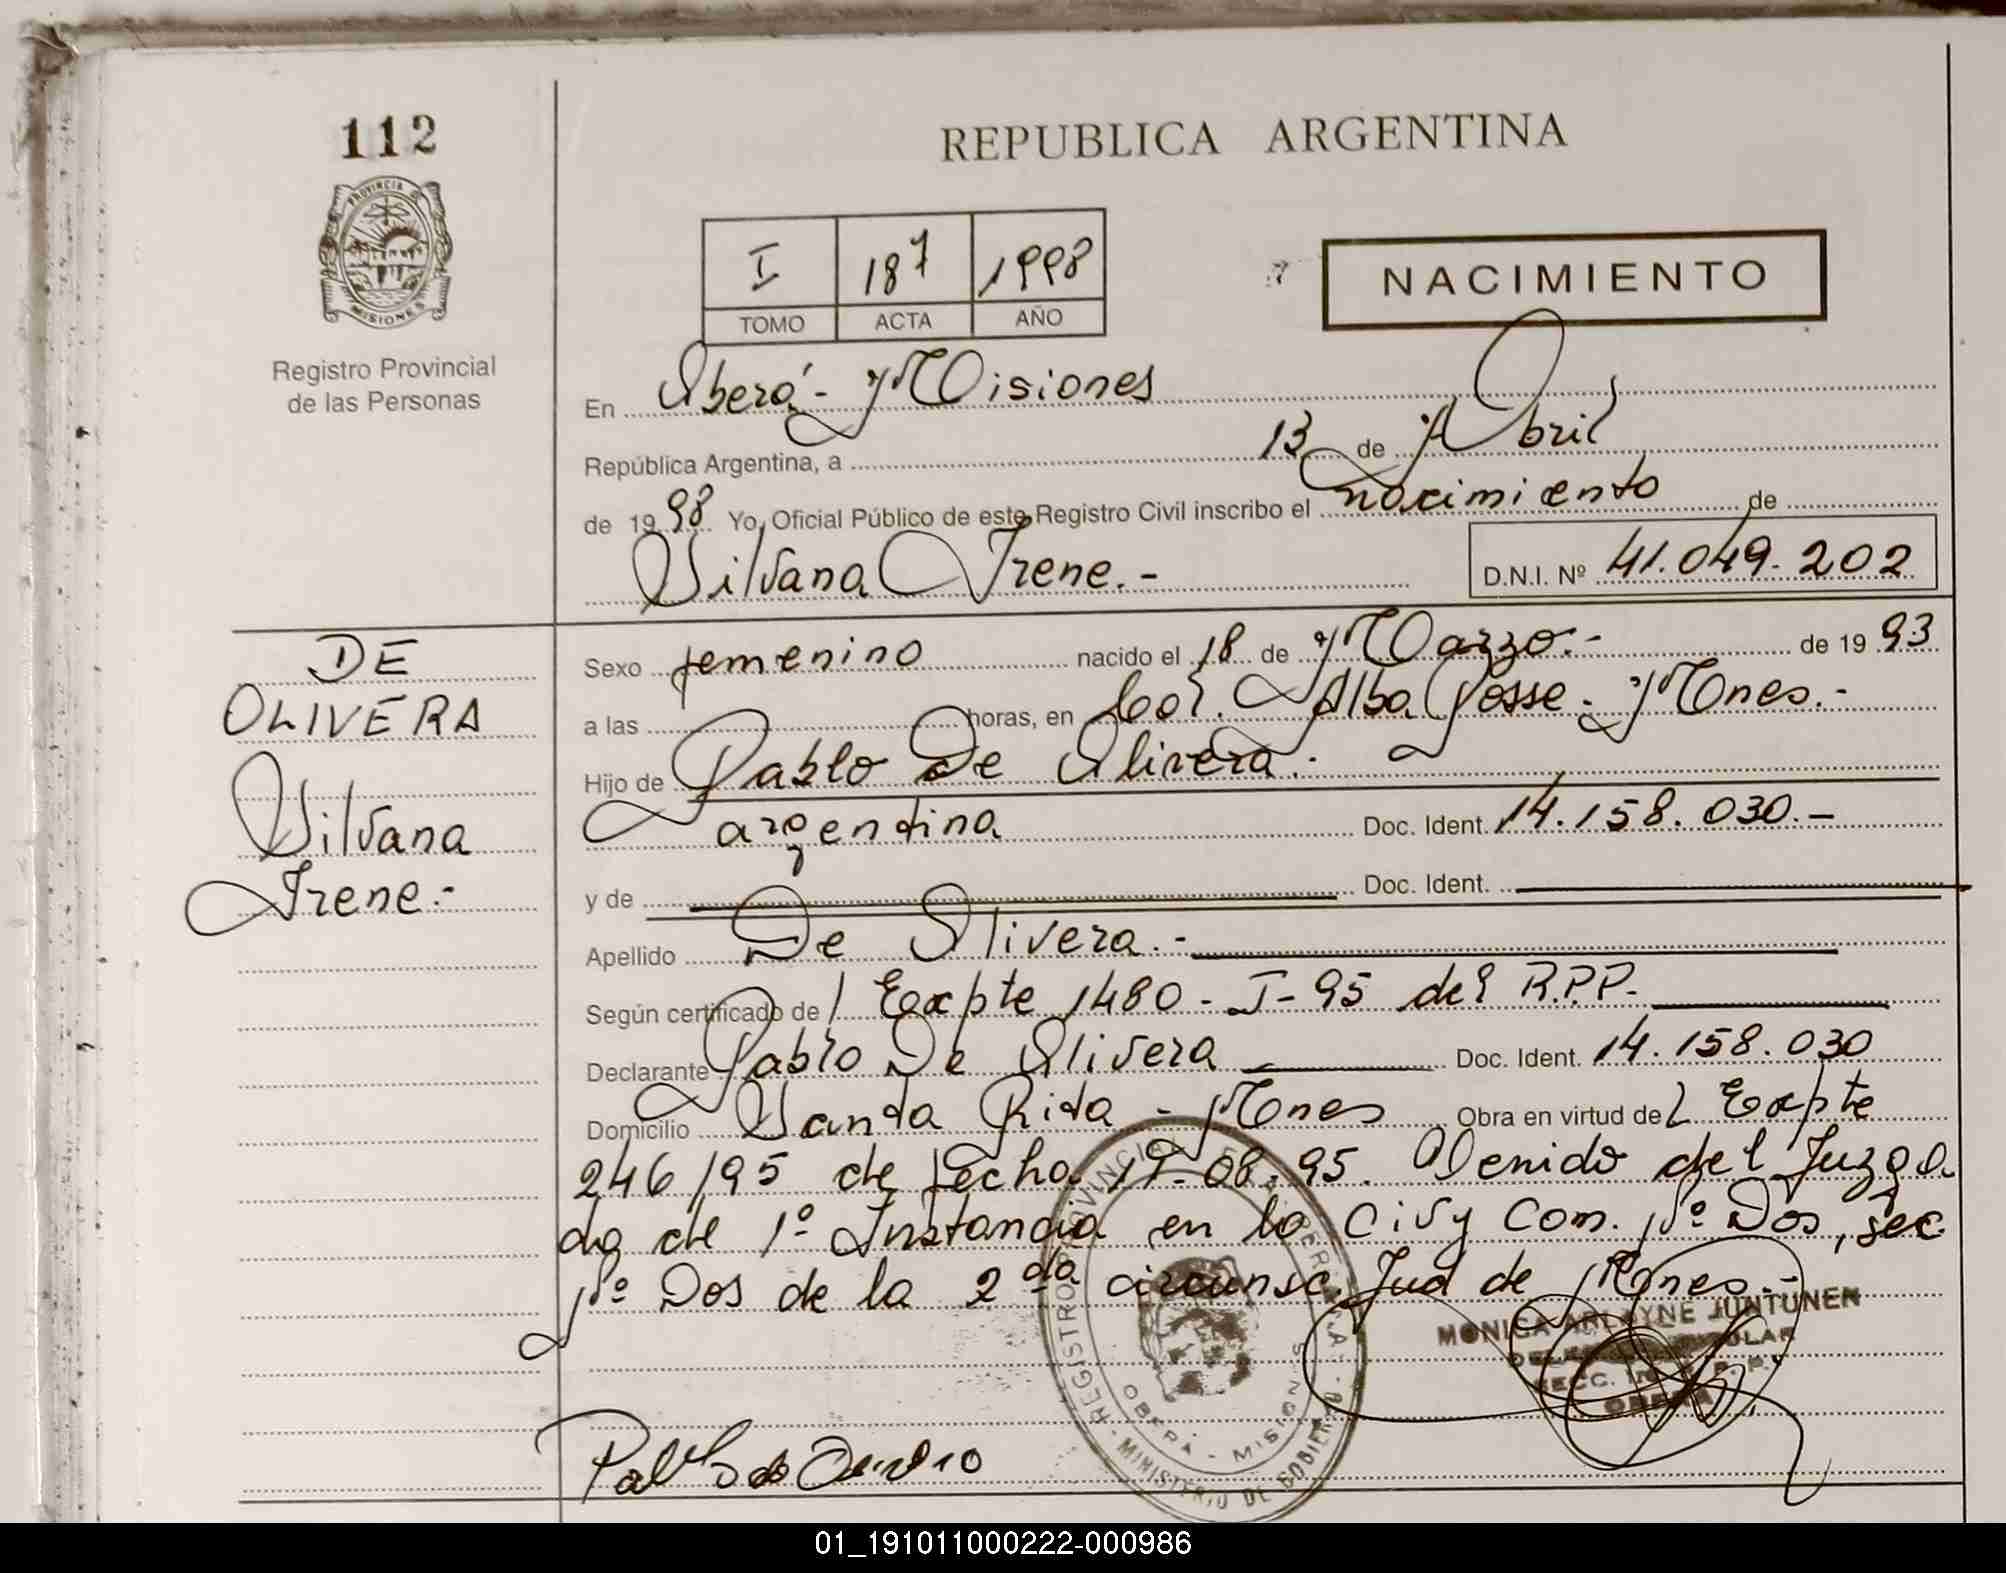 112
REPUBLICA ARGENTINA
PROVINCIA DE
MISIONES
Registro Provincial
de las Personas
I 187 1998
TOMO ACTA AÑO
NACIMIENTO
En Oberá - Misiones
República Argentina, a 13 de Abril
de 1998 Yo, Oficial Público de este Registro Civil inscribo el nacimiento de
Silvana Irene.-
D.N.I. Nº 41.049.202
DE
OLIVERA
Silvana
Irene.-
Sexo femenino nacido el 18 de Marzo.- de 1993
a las horas, en Col. Alba Posse - Mnes.-
Hijo de Pablo De Olivera.-
argentina Doc. Ident. 14.158.030.-
y de Doc. Ident.
Apellido De Olivera.-
Según certificado de l Expte 1480 - I - 95 del R.P.P.
Declarante Pablo De Olivera Doc. Ident. 14.158.030
Domicilio Santa Rita - Mnes Obra en virtud del Expte
246/95 de fecha 17-08-95. Venido del Juzga
do de 1º Instancia en lo Civ y Com. Nº Dos, sec
Nº Dos de la 2da circunsc. Jud de Mnes.-
MONICA ARLAYNE JUNTUNEN
SECC.
OBERA
REGISTRO PROVINCIAL DE
OBERÁ - MISIONES
MINISTERIO DE GOBIERNO
Pablo de
01_191011000222-000986